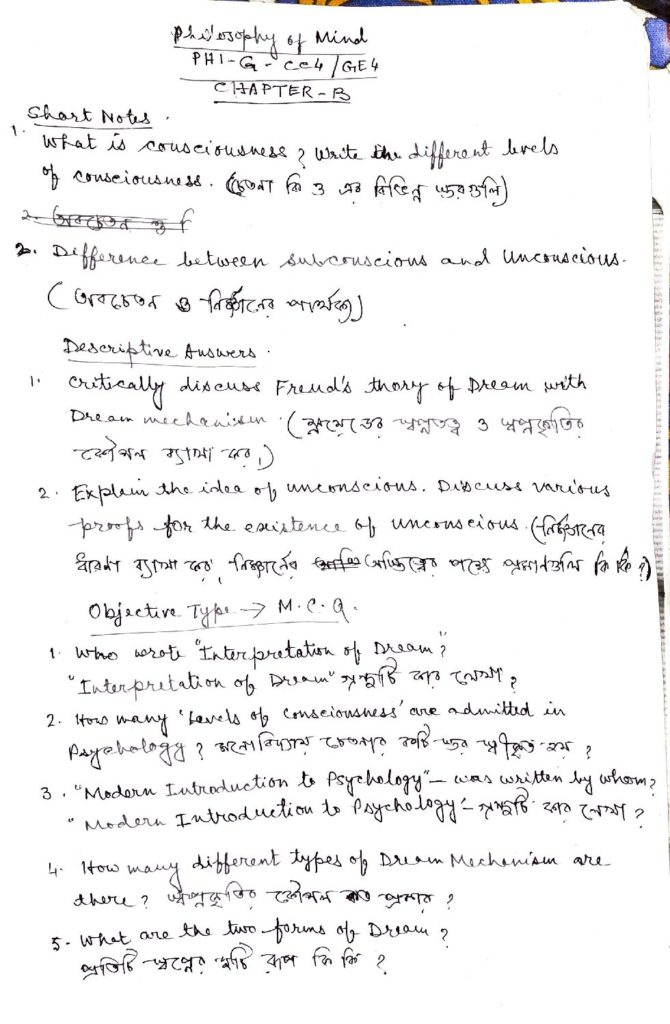 Philosophy of Mind
PHI-G-CC4/GE4
CHAPTER-B
Short Notes.
1. What is consciousness? Write the different levels
of consciousness. (চেতনা কি ও এর বিভিন্ন স্তরগুলি)
2. অবচেতন ও
2. Difference between subconscious and Unconscious.
(অবচেতন ও নির্জ্ঞানের পার্থক্য)
Descriptive Answers.
1. Critically discuss Freud's thory of Dream with
Dream mechanism. (ফ্রয়েডের স্বপ্নতত্ত্ব ও স্বপ্নকৃতির
কৌশল ব্যাখ্যা কর।)
2. Explain the idea of unconscious. Discuss various
proofs for the existence of unconscious. (নির্জ্ঞানের
ধারণা ব্যাখ্যা কর, নির্জ্ঞানের অস্তিত্বের পক্ষে প্রমাণগুলি কি কি?)
Objective Type → M.C.Q.
1. Who wrote "Interpretation of Dream"?
"Interpretation of Dream" গ্রন্থটি কার লেখা?
2. How many 'Levels of Consciousness' are admitted in
Psychology? মনোবিদ্যায় চেতনার কটি স্তর স্বীকৃত হয়?
3. "Modern Introduction to Psychology" – was written by whom?
"Modern Introduction to Psychology' – গ্রন্থটি কার লেখা?
4. How many different types of Dream Mechanism are
there? স্বপ্নকৃতির কৌশল কত প্রকার?
5. What are the two forms of Dream?
প্রতিটি স্বপ্নের দুটি রূপ কি কি?